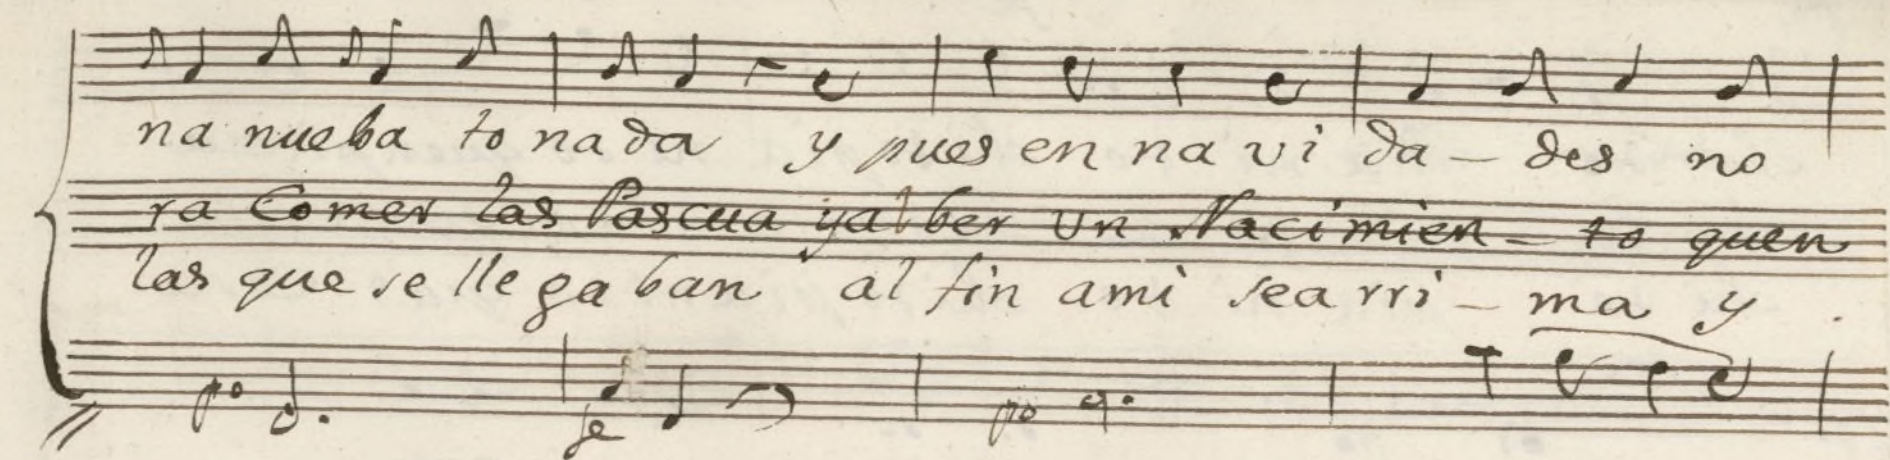 na nueba to nada y pues en na vi da - des no
ra Comer las Pascua yal ber un Nacimien - to quen
las que se lle ga ban al fin ami sea rri - ma y
po fe po